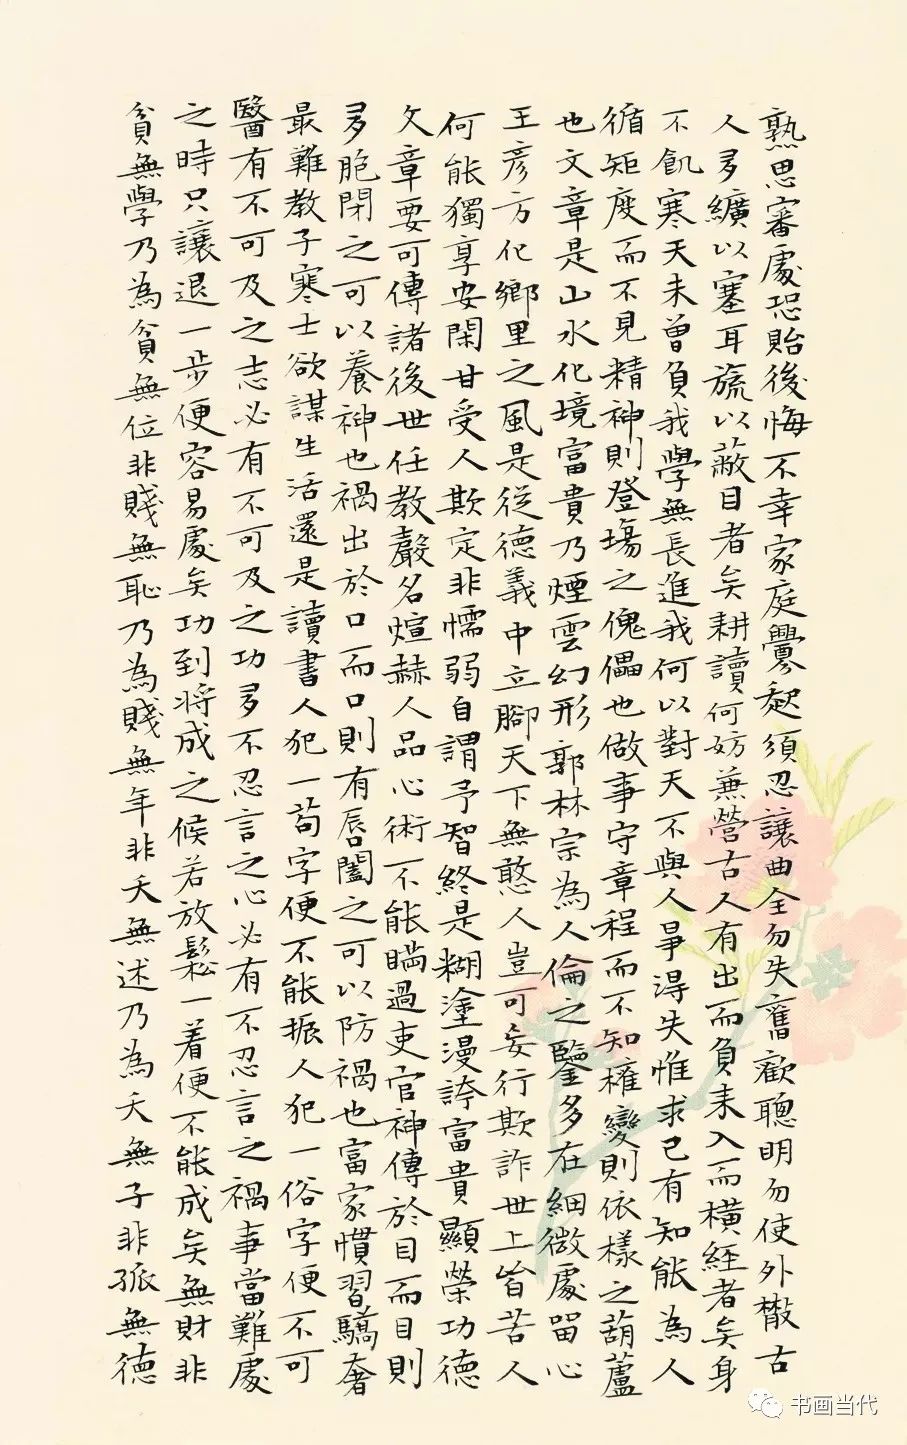 熟思審處恐貽後悔不幸家庭釁起須忍讓曲全勿失舊歡聰明勿使外散古
人多纊以塞耳旒以蔽目者矣耕讀何妨兼營古人有出而負耒入而橫經者矣身
不飢寒天未曾負我學無長進我何以對天不與人爭得失惟求己有知能為人
循矩度而不見精神則登場之傀儡也做事守章程而不知權變則依樣之葫蘆
也文章是山水化境富貴乃煙雲幻形郭林宗為人倫之鑒多在細微處留心
王彥方化鄉里之風是從德義中立腳天下無憨人豈可妄行欺詐世上皆苦人
何能獨享安閑甘受人欺定非懦弱自謂予智終是糊塗漫誇富貴顯榮功德
文章要可傳諸後世任教聲名煊赫人品心術不能瞞過吏官神傳於目而目則
多胞閉之可以養神也禍出於口而口則有唇闔之可以防禍也富家慣習驕奢
最難教子寒士欲謀生活還是讀書人犯一苟字便不能振人犯一俗字便不可
醫有不可及之志必有不可及之功多不忍言之心必有不忍言之禍事當難處
之時只讓退一步便容易處矣功到將成之候若放鬆一着便不能成矣無財非
貧無學乃為貧無位非賤無恥乃為賤無年非夭無述乃為夭無子非孤無德
书画当代